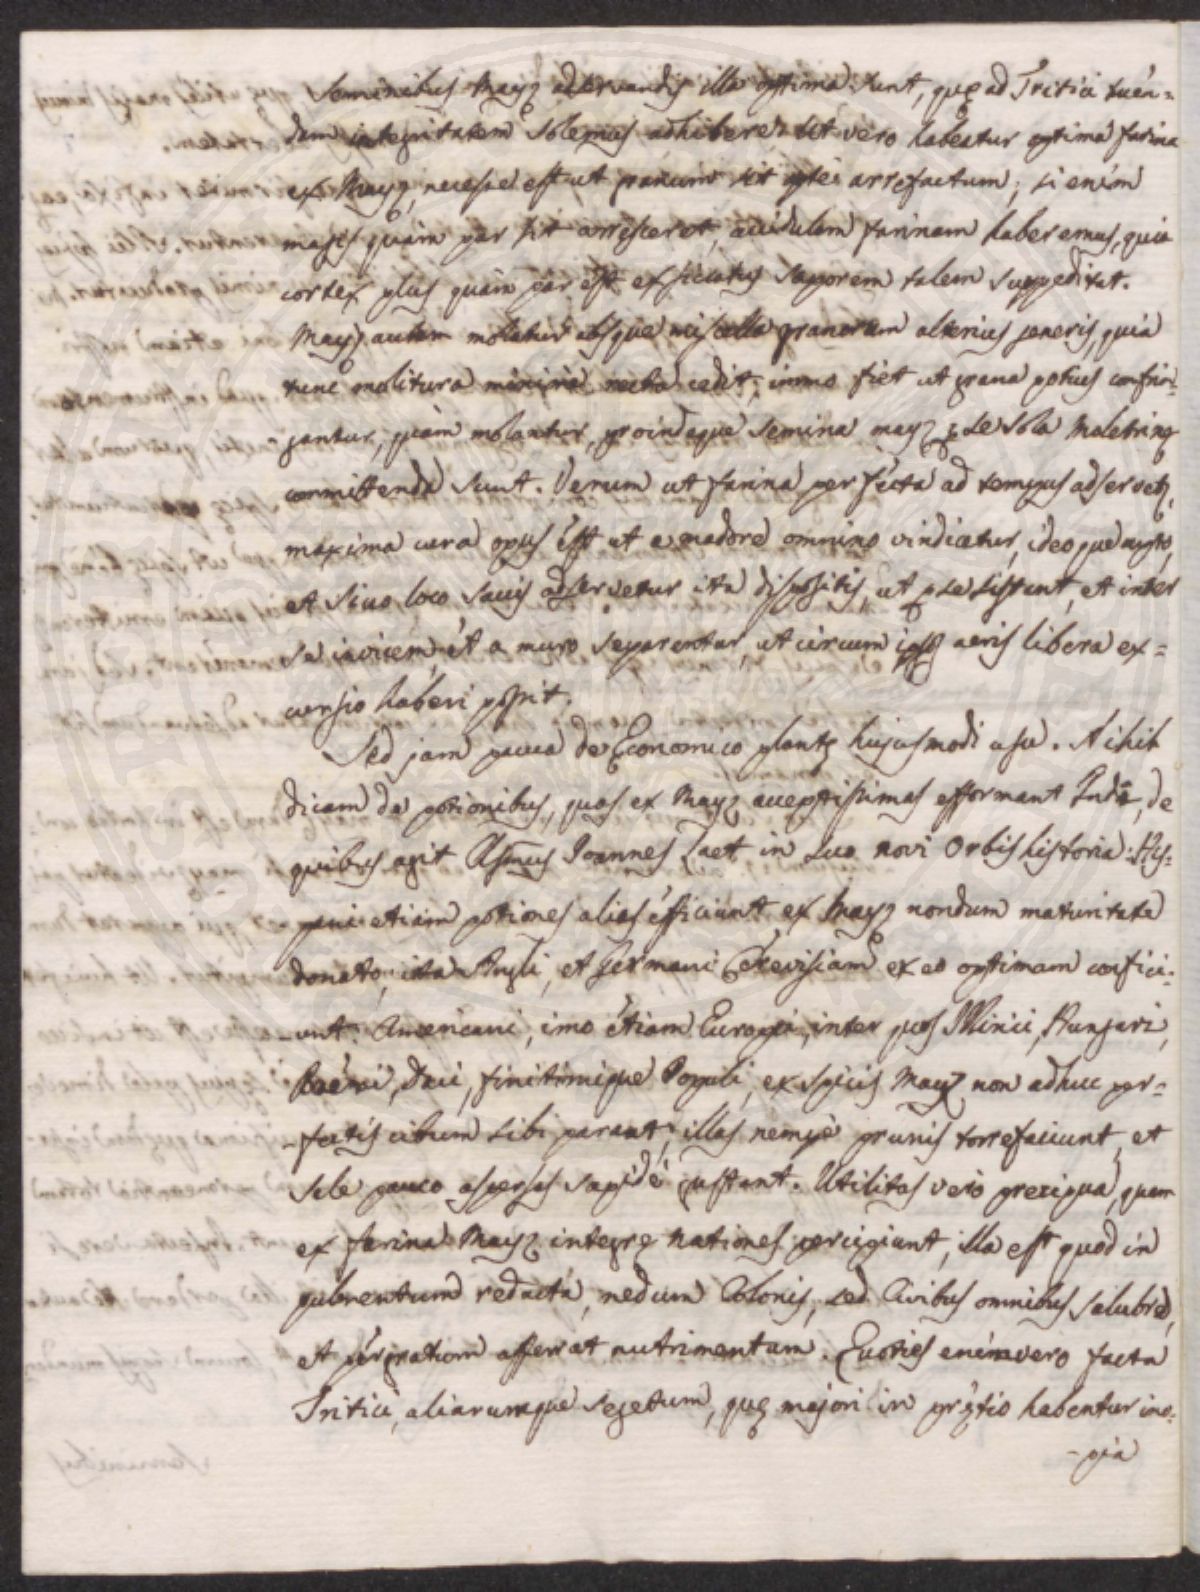 Seminibus Mayz adservandis illa optima sunt, quę ad Tritici tuen=
dam integritatem solemus adhibere. Ut vero habeatur optima farina
ex Mayz, necesse est ut granum sit rite arrefactum; si enim
magis quàm par sit arresceret, acidulam farinam haberemus, quia
cortex plus quàm par est exsiccatus saporem talem suppeditat.
Mayz autem molatur absque miscella granorum alterius generis, quia
tunc molitura minimè recta cedit; immo fiet ut grana potius confrin=
gantur, quàm molantur, proindeque semina mayz per se sola Moletrinę
committenda sunt. Verum ut farina perfecta ad tempus adservetur,
maxima cura opus est ut a madore omnino vindicetur, ideoque
et sicco loco saccis adservetur ita dispositis, ut per se sistant, et inter
se invicem et a muro separentur, ut circum ipsos aeris libera ex=
cursio haberi possit.
Sed jam pauca de Economico plantę hujusmodi usu. Nihil
dicam de potionibus, quas ex Mayz acceptissimas efformant Indi, de
quibus agit Joannes Laet in suo novi Orbis historia: His=
pani etiam potiones alias efficiunt ex Mayz nondum maturitate
donato; ita Angli, et Germani Cerevisiam ex eo optimam confici=
-unt. Americani, imo etiam Europei, inter quos Hungari,
Daci, finitimique Populi, ex spicis Mayz non adhuc per=
-fectis cibum sibi parant; illas nempè prunis torrefaciunt, et
sale pauco aspersas sapidè gustant. Utilitas vero precipua, quam
ex farina Mayz integrę Nationes percipiunt, illa est quod in
pulmentum redacta, nedum Colonis, sed Civibus omnibus salubre,
et pergratum afferat nutrimentum. Quoties enimvero facta
Tritici, aliarumque segetum, quę majori in prętio habentur ino=
-pia